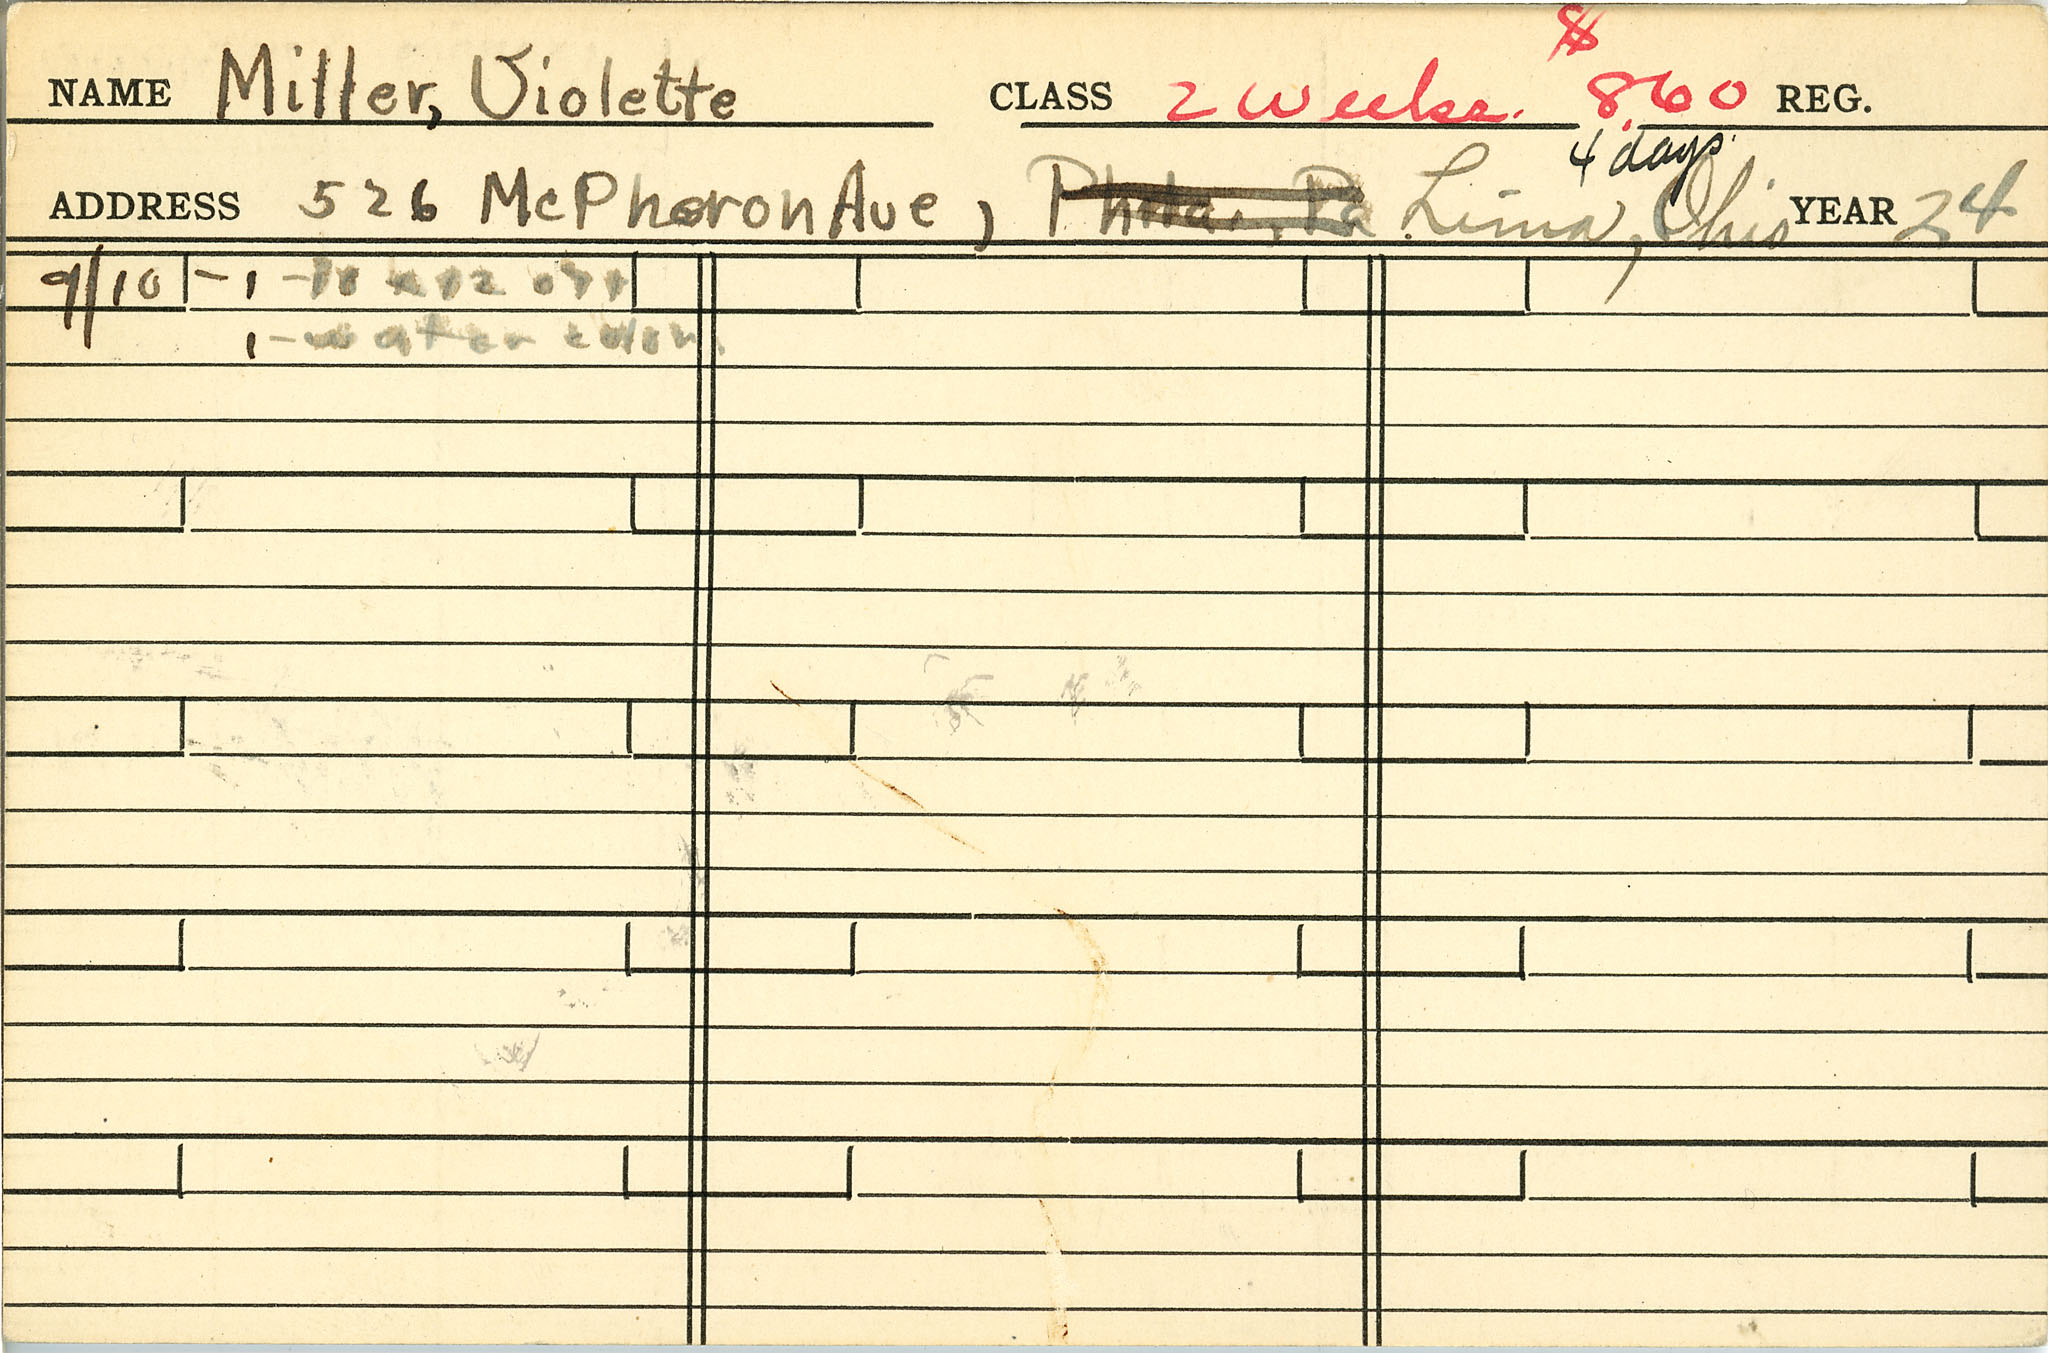 NAME Miller, Violette CLASS 2 Weeks. $8.60 REG.
4 days.
ADDRESS 526 McPheron Ave, Phila., Pa Lima, Ohio YEAR 24
9/10 - 1 - 18 x 12
1 - water color.